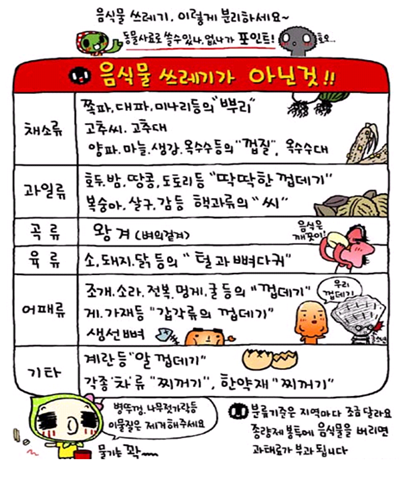 음식물 쓰레기, 이렇게 분리하세요~
동물사료로 쓸수있나, 없나가 포인트!
호오...
음식물 쓰레기가 아닌것!!
채소류
쪽파, 대파, 미나리등의 "뿌리"
고추씨, 고추대
양파, 마늘, 생강, 옥수수등의 "껍질", 옥수수대
과일류
호두, 밤, 땅콩, 도토리등 "딱딱한 껍데기"
복숭아, 살구, 감등 핵과류의 "씨"
곡류
왕겨 (벼의겉겨)
음식은
깨끗이!
육류
소, 돼지, 닭 등의 "털과 뼈다귀"
어패류
조개, 소라, 전복, 멍게, 굴등의 "껍데기"
게, 가재등 "갑각류의 껍데기"
생선뼈
우리
껍데기
기타
계란등 "알 껍데기"
각종 '차'류 "찌꺼기", 한약재 "찌꺼기"
병뚜껑, 나무젓가락등
이물질은 제거해주세요
물기는 꽉~
분류기준은 지역마다 조금 달라요
종량제 봉투에 음식물을 버리면
과태료가 부과 됩니다